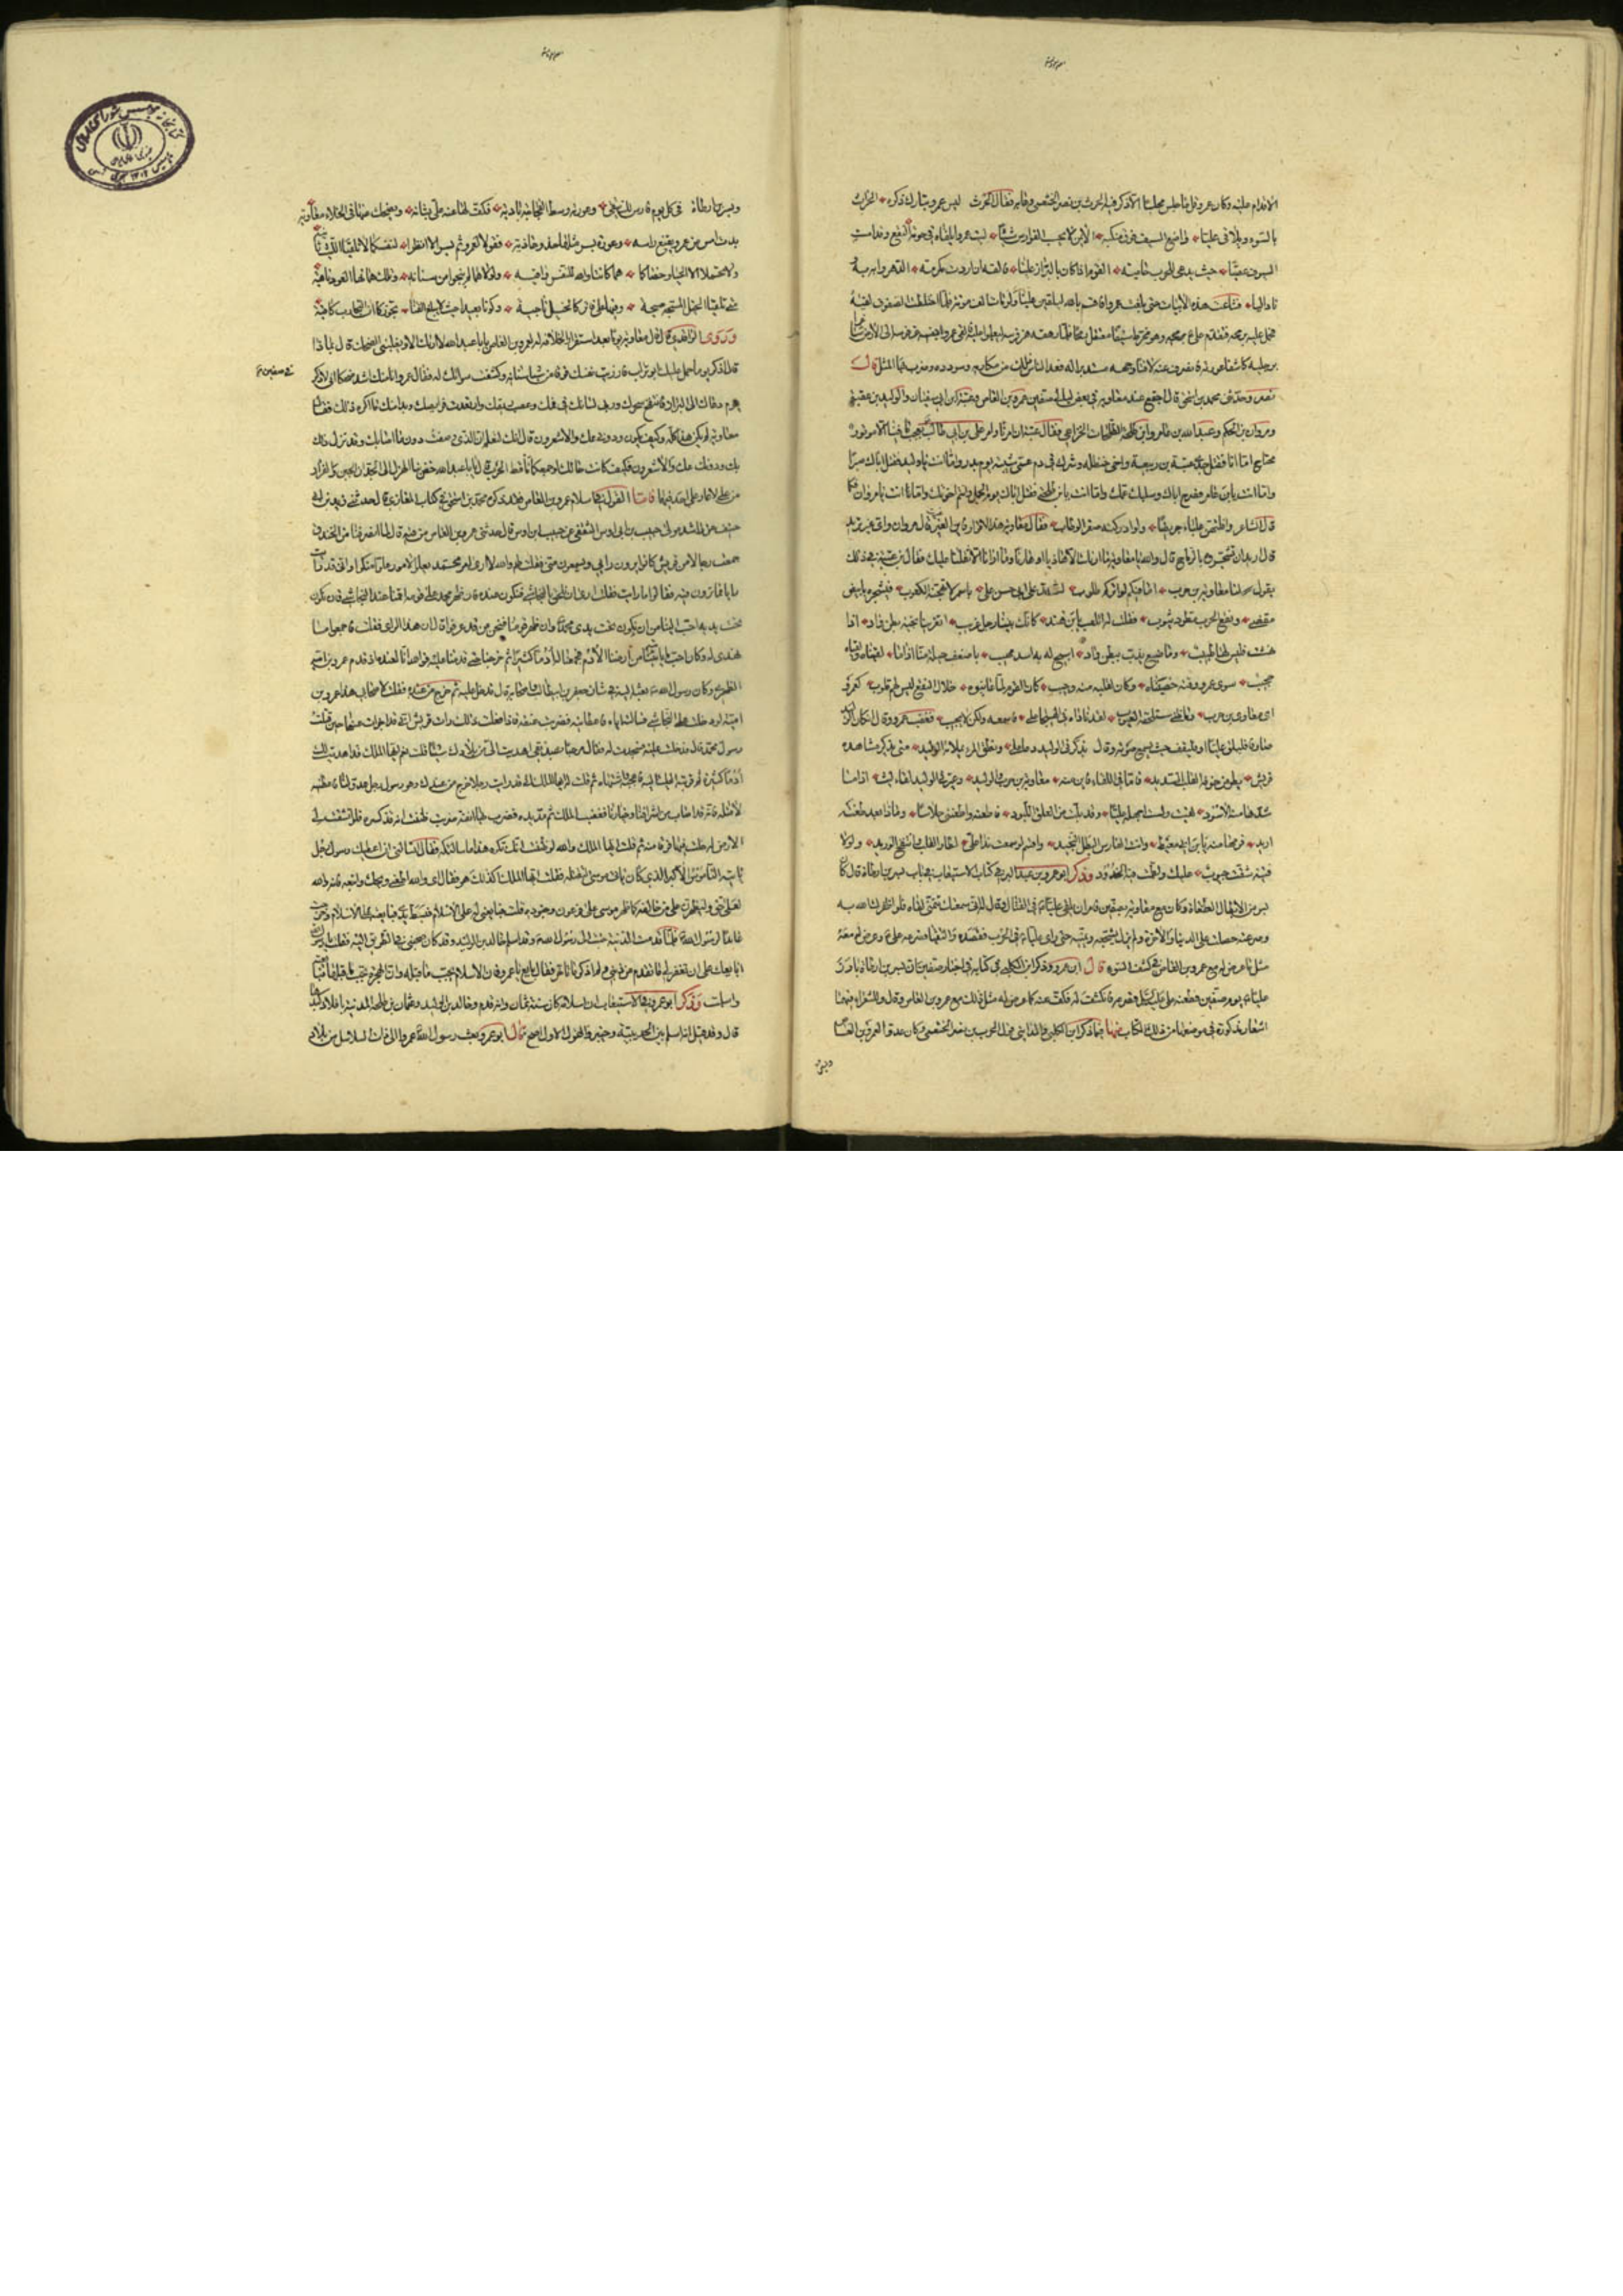 الاقدام عليه وكان عمرو قل ما جلس مجلسا الا ذكر فيه الحرث بن نضر الخثعمى وعابه فقال الحرث ليس عمرو بتارك ذكره الحرث
بالسوء ويلاقى عليا واضع السيف فوق منكبه الايمن لا يحسب الفوارس شيئا ليت عمروا يلقاه فى حومة النقع وقد امست
السيوف عصيا حيث يدعو للحرب حامية القوم اذا كان بالبراز مليا فالقه ان اردت مكرمة
فشاعت هذه الابيات حتى بلغت عمروا فاقسم بالله ليلقين عليا ولو مات الف موتة فلما اختلطت الصفوف لقيه
فحمل عليه برمحه فتقدم على ع وهو مخترط سيفا معتقل رمحا فلما رهقه همز فرسه ليعلو عليه فالقى عمرو نفسه عن فرسه الى الارض شاغرا
برجليه كاشفا عورته فانصرف عنه لافتا وجهه مستدبرا له فعد الناس ذلك من مكارمه وسودده وضرب بها المثل قال
نصر وحدثنى محمد بن اسحق قال اجتمع عند معاوية فى بعض ليالى صفين عمرو بن العاص وعتبة بن ابى سفيان والوليد بن عقبة
ومروان بن الحكم وعبدالله بن عامر وابن طلحة الطلحات الخزاعى فقال عتبة ان امرنا وامر على بن ابى طالب لعجب ما فينا الا موتور
محتاج اما انا فقتل جدى عتبة بن ربيعة واخى حنظلة وشرك فى دم عمى شيبة يوم بدر واما انت يا وليد فقتل اباك صبرا
واما انت يا بن عامر فصرع اباك وسلب عمك واما انت يا بن طلحة فقتل اباك يوم الجمل وايتم اخوتك واما انت يا مروان فكما
قال الشاعر وافلتهن علباء جريضا ولو ادركنه صفر الوطاب فقال معاوية هذا الاقرار فاين الغير قال مروان واى غير تريد
قال اريد ان تشجروه بالرماح قال والله يا معاوية ما اراك الا هاذيا او هازئا وما ارانا الا ثقلنا عليك فقال ابن عقبة فى ذلك
يقول لنا معاوية بن حرب اما فيكم لواتركم طلوب يشد على ابى حسن على باسمر لا تهجنه الكعوب
ونقع الحرب مطرد يؤوب فقلت له اتلعب يا بن هند كانك بيننا رجل غريب اتغرينا بحية بطن واد اذا
نهشت فليس لها طبيب وما ضبع يدب ببطن واد اتيح له به اسد مهيب باضعف حيلة منا اذا ما لقيناه ولقياه
عجيب سوى عمرو وقته خصيتاه وكان لقلبه منه وجيب كان القوم لما عاينوه خلال النقع ليس لهم قلوب لعمرو
ابى معاوية بن حرب لقد ناداه فى الهيجا على فاسمعه ولكن لا يجيب فغضب عمرو وقال ان كان الوليد
صادقا فليلق عليا او فليقف حيث يسمع صوته وقال يذكرنى الوليد دعا على ونطق المرء يملاه الوعيد متى يذكر مشاهده
قريش يطر من خوفه القلب الشديد فاما فى اللقاء فاين منه معاوية بن حرب والوليد وعيرنى الوليد لقاء ليث اذا ما
شد هابته الاسود لقيت ولست اجهله عليا وقد بلت من العلق اللبود فاطعنه ويطعننى خلاسا وماذا بعد طعنته
اريد فرمها منه يا بن ابى معيط وانت الفارس البطل النجيد واقسم لو سمعت ندا على لطار القلب وانتفخ الوريد ولو لا
قيته شقت جيوب عليك ولطمت فيك الخدود وذكر ابو عمرو بن عبد البر فى كتاب الاستيعاب فى باب بسر بن ارطاة قال كان
بسر من الابطال الطغاة وكان مع معاوية بصفين فامره ان يلقى عليا ع فى القتال وقال له انى سمعتك تتمنى لقاءه فلو اظفرك الله به
وصرعته حصلت على الدنيا والاخرة ولم يزل يشجعه ويمنيه حتى راى عليا ع فى الحرب فقصده والتقيا وصرعه على ع وعرض له معه
مثل ما عرض له مع عمرو بن العاص فى كشف السوءة قال ابو عمرو وذكر ابن الكلبى فى كتابه فى اخبار صفين ان بسر بن ارطاة بارز
عليا ع يوم صفين فطعنه على ع فصرعه فانكشف له فكف عنه كما عرض له مثل ذلك مع عمرو بن العاص وقال وللشعراء فيهما
اشعار مذكورة فى موضعها من ذلك الكتاب منها فيما ذكر ابن الكلبى والمداينى قول الحرث بن نضر الخثعمى وكان عدوا لعمرو بن العاص
وبسر بن ارطاة افى كل يوم فارس لك ينتهى وعورته وسط العجاجة باديه يكف لها عنه على سنانه ويضحك منها فى الخلاء معاويه
بدت امس من عمرو فقنع راسه وعورة بسر مثلها حذو حاذيه فقولا لعمرو ثم بسر الا انظرا لنفسكما لا تلقيا الليث ثانيه
ولا تحمدا الا الحيا وخصاكما هما كانتا والله للنفس واقيه ولولاهما لم تنجوا من سنانه وتلك بما فيها عن العود ناهيه
متى تلقيا الخيل المشيحة صبحة وفيها على فاتركا الخيل ناحيه وكونا بعيدا حيث لا يبلغ القنا نحوركما ان التجارب كافيه
وروى الواقدى قال قال معاوية يوما بعد استقرار الخلافة له لعمرو بن العاص يا ابا عبد الله لا اراك الا ويغلبنى الضحك قال بماذا
قال اذكر يوم حمل عليك ابو تراب فى صفين فازريت نفسك فرقا من شبا سنانه وكشفت سوءتك له فقال عمرو انا منك اشد ضحكا انى لاذكر
يوم دعاك الى البراز فانتفخ سحرك وربا لسانك فى فمك وغصصت بريقك وارتعدت فرائصك وبدا منك ما اكره ذكره لك فقال
معاوية لم يكن هذا كله وكيف يكون ودونى عك والاشعرون قال انك لتعلم ان الذى وصفت دون ما اصابك وقد نزل ذلك
بك ودونك عك والاشعرون فكيف كانت حالك لو جمعكما ماقط الحرب قال يا ابا عبد الله خض بنا الهزل الى الجد ان الجبن والفرار
من على لا عار على احد فيهما فاما القول فى اسلام عمرو بن العاص فقد ذكره محمد بن اسحق فى كتاب المغازى قال حدثنى زيد بن ابى
حبيب عن راشد مولى حبيب بن ابى اوس الثقفى عن حبيب بن اوس قال حدثنى عمرو بن العاص من فيه قال لما انصرفنا من الخندق
جمعت رجالا من قريش كانوا يرون رايى ويسمعون منى فقلت لهم والله لارى امر محمد يعلو الامور علوا منكرا وانى قد رايت
رايا فما ترون فيه فقالوا ما رايت فقلت ارى ان نلحق بالنجاشى فنكون عنده فان ظهر محمد على قومه اقمنا عند النجاشى فان نكون
تحت يديه احب الينا من ان نكون تحت يدى محمد وان ظهر قومنا فنحن من قد عرفوا قال ان هذا الراى فقلت فاجمعوا ما
نهدى له وكان احب ما ياتيه من ارضنا الادم فجمعنا له ادما كثيرا ثم خرجنا حتى قدمنا عليه فوالله انا لعنده اذ قدم عمرو بن امية
الضمرى وكان رسول الله ص بعثه اليه فى شان جعفر بن ابى طالب واصحابه قال فدخل عليه ثم خرج من عنده فقلت لاصحابى هذا عمرو بن
امية لو قد دخلت على النجاشى فسالته اياه فاعطانيه فضربت عنقه فاذا فعلت ذلك رات قريش انى قد اجزات عنها حين قتلت
رسول محمد قال فدخلت عليه فسجدت له فقال مرحبا بصديقى اهديت الى من بلادك شيئا قلت نعم ايها الملك قد اهديت لك
ادما كثيرا ثم قربته اليه فاعجبه واشتهاه ثم قلت له ايها الملك انى قد رايت رجلا خرج من عندك وهو رسول رجل عدو لنا فاعطنيه
لاقتله فانه قد اصاب من اشرافنا وخيارنا فغضب الملك ثم مد يده فضرب بها انفه ضربة ظننت انه قد كسره فلو انشقت لى
الارض لدخلت فيها فرقا منه ثم قلت ايها الملك والله لو ظننت انك تكره هذا ما سالتكه فقال اتسالنى ان اعطيك رسول رجل
ياتيه الناموس الاكبر الذى كان ياتى موسى لتقتله فقلت ايها الملك اكذلك هو فقال اى والله اطعنى ويحك واتبعه فانه والله
لعلى حق وليظهرن على من خالفه كما ظهر موسى على فرعون وجنوده قلت فبايعنى له على الاسلام فبسط يده فبايعته على الاسلام وخرجت
عامدا لرسول الله ص فلما قدمت المدينة جئت الى رسول الله ص وقد اسلم خالد بن الوليد وقد كان صحبنى فى الطريق اليه فقلت يا رسول الله
ابايعك على ان تغفر لى ما تقدم من ذنبى ولم اذكر ما تاخر فقال بايع يا عمرو فان الاسلام يجب ما قبله وان الهجرة تجب ما قبلها فبايعته
واسلمت وذكر ابو عمرو فى الاستيعاب ان اسلامه كان سنة ثمان وانه قدم وخالد بن الوليد وعثمان بن طلحة المدينة
قال وقد قيل انه اسلم بين الحديبية وخيبر والقول الاول اصح قال ابو عمرو وبعث رسول الله عمروا الى ذات السلاسل من بلاد